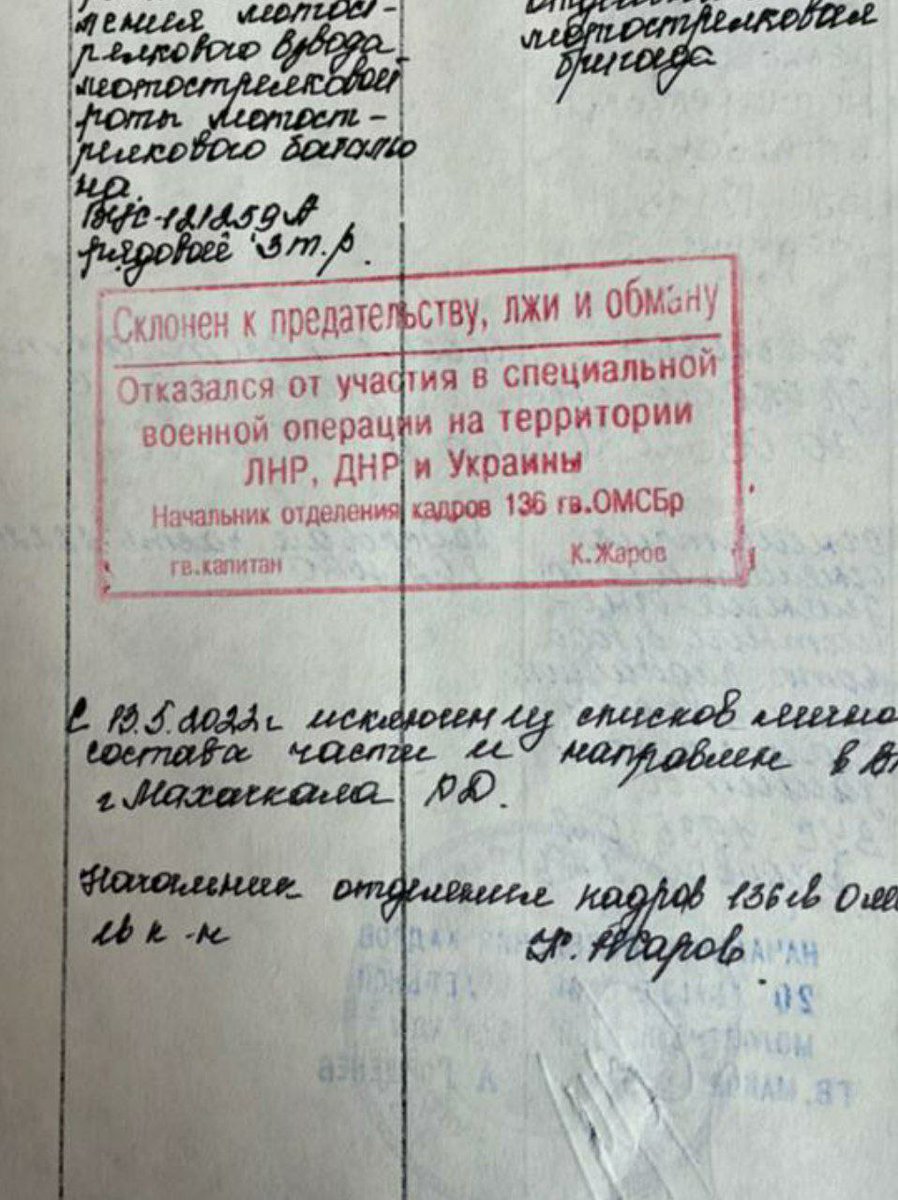 мотост-
релкового взвода
мотострелковой
роты мотост-
релкового баталь
на.
ВУС-121259А
рядовой 3 т.р.
мотострелковая
бригада
Склонен к предательству, лжи и обману
Отказался от участия в специальной
военной операции на территории
ЛНР, ДНР и Украины
Начальник отделения кадров 136 гв.ОМСБр
гв.капитан К.Жаров
С 13.5.2022г исключен из списков лично
состава части и направлен в В
г Махачкала РД.
Начальник отделения кадров 136 гв ОМ
гв к-н К. Жаров